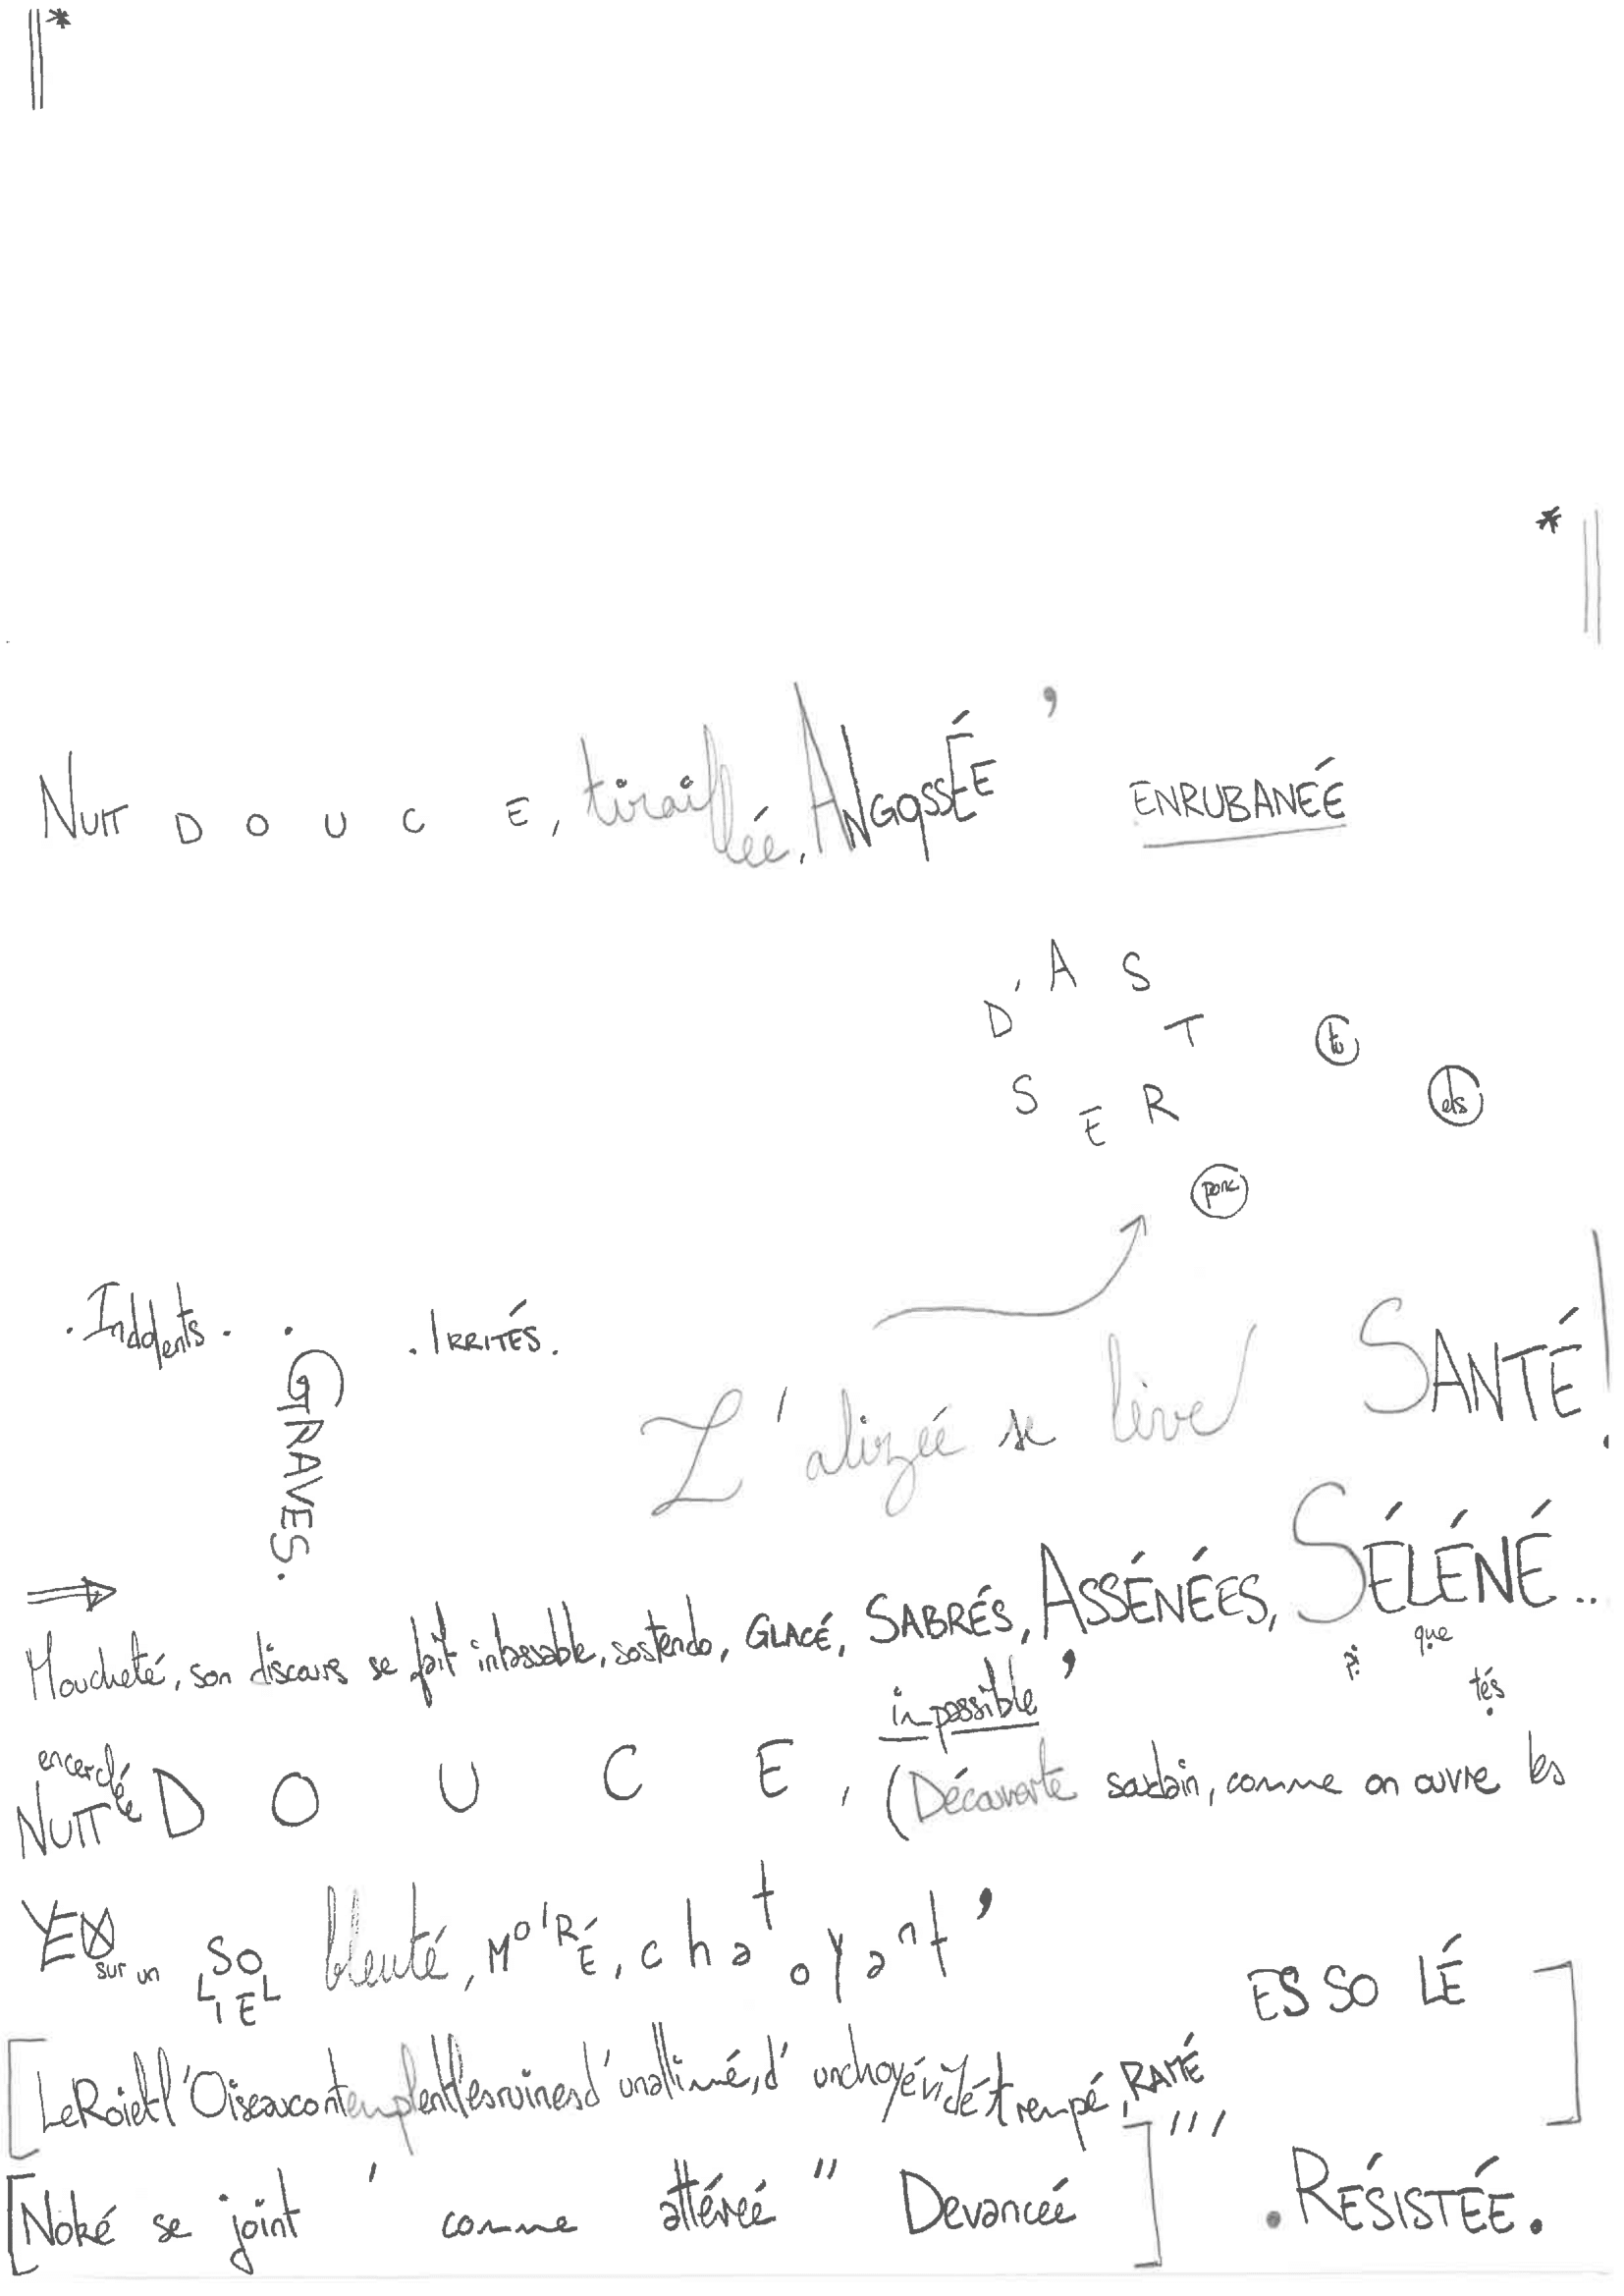 ||*
* ||
NUIT D O U C E, tiraillée, ANGOSSÉE ' ENRUBANÉÉ
D'ASTRES
tu
els
ponc
. Indolents . . GRAVES. . IRRITÉS.
L'alizéé se lève SANTÉ!
⇒
Moucheté, son discours se fait inlassable, sostendo, GLACÉ, SABRÉS, ASSÉNÉES, SÉLÉNÉ..
impossible ' pi que tés
encerclée
NUIT D O U C E, (Découverte soudain, comme on ouvre les
YEUX sur un SOLLIEL bleuté, MOIRÉ, chatoyant '
ESSOLÉ ]
[LeRoietl'Oiseaucontemplentl'esruinesd'unallimé,d'unchoyévidétrempé, RAMÉ
[Noké se joint ' comme attéréé " Devancéé ] ''' . RÉSISTÉE.